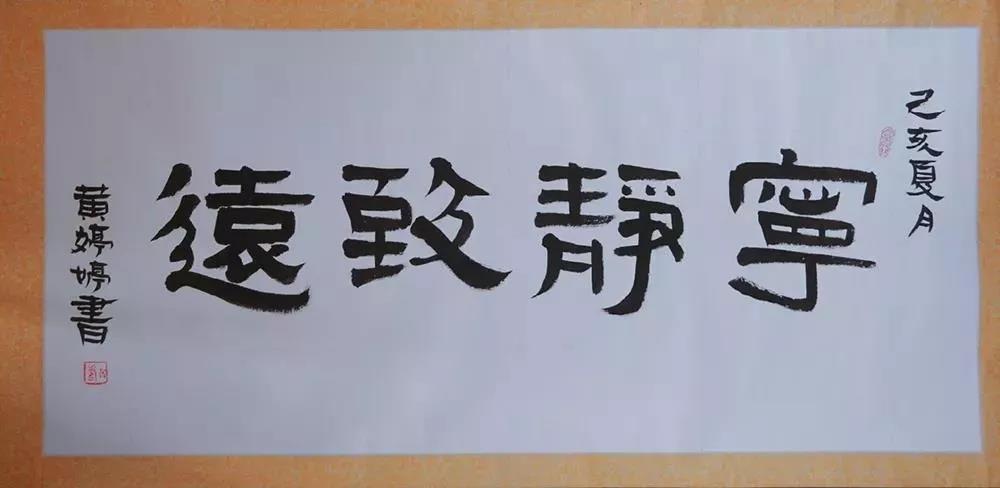 己亥夏月
寧靜致遠
黄婷婷書